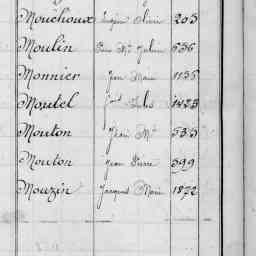 Mouchoux Eugène Olivier 203
Moulin Pierre Me Julien 536
Monnier Jean Marie 1135
Moutel Jules 1433
Mouton Jean Me 533
Mouton Jean Pierre 399
Mouzin Jacques Marie 1822